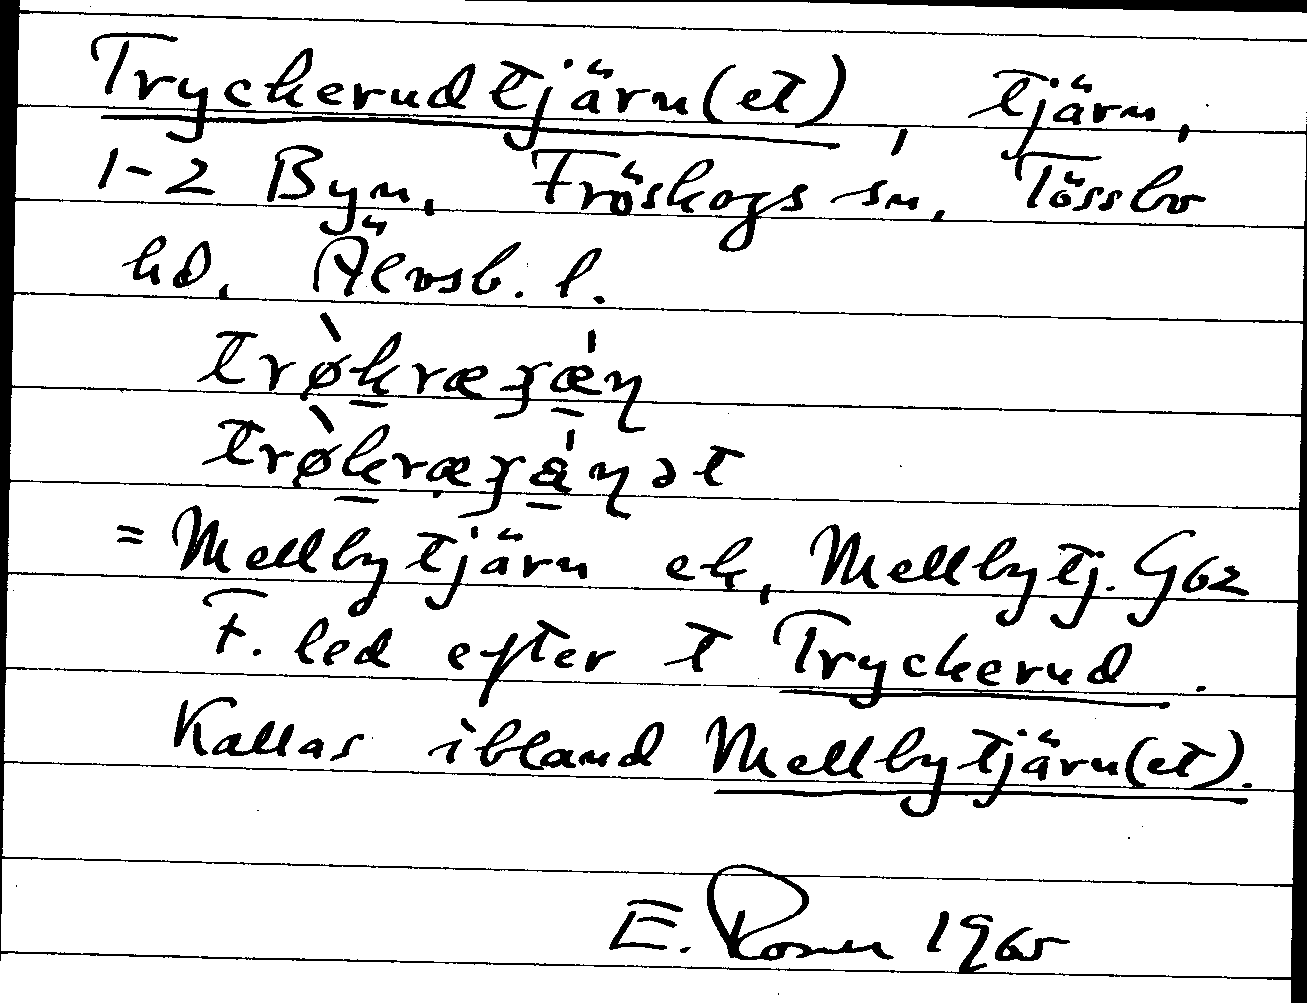 Tryckerudtjärn(et), tjärn,
1-2 Byn, Fröskogs sn, Tössbo
hd, Älvsb. l.
trø̀kræʒǽη
trø̀kræʒǽηət
= Mellbytjärn ek, Mellbytj. G62
F. led efter t Tryckerud.
Kallas ibland Mellbytjärn(et).
E. Rosen 1965